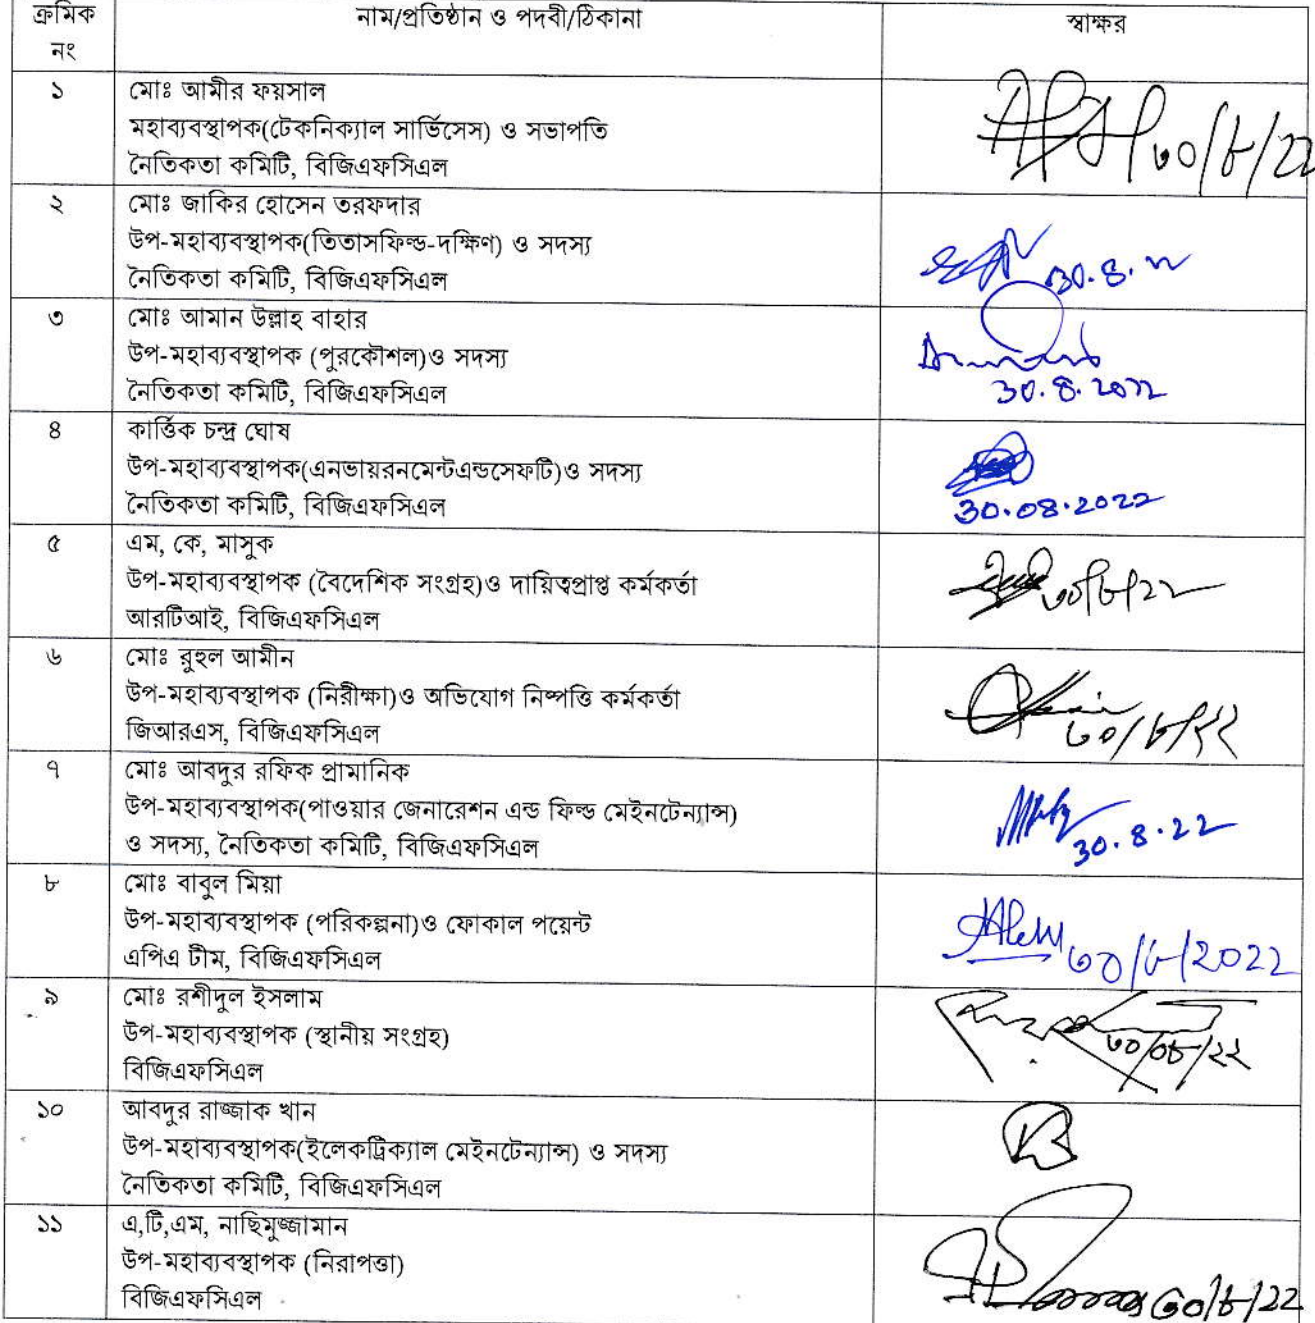 ক্রমিক নাম/প্রতিষ্ঠান ও পদবী/ঠিকানা স্বাক্ষর
নং
১ মোঃ আমীর ফয়সাল
মহাব্যবস্থাপক(টেকনিক্যাল সার্ভিসেস) ও সভাপতি
নৈতিকতা কমিটি, বিজিএফসিএল
৩০/৮/22
২ মোঃ জাকির হোসেন তরফদার
উপ-মহাব্যবস্থাপক(তিতাসফিল্ড-দক্ষিণ) ও সদস্য
নৈতিকতা কমিটি, বিজিএফসিএল
30.8.22
৩ মোঃ আমান উল্লাহ বাহার
উপ-মহাব্যবস্থাপক (পুরকৌশল)ও সদস্য
নৈতিকতা কমিটি, বিজিএফসিএল
30.8.2022
৪ কার্ত্তিক চন্দ্র ঘোষ
উপ-মহাব্যবস্থাপক(এনভায়রনমেন্টএন্ডসেফটি)ও সদস্য
নৈতিকতা কমিটি, বিজিএফসিএল
30.08.2022
৫ এম, কে, মাসুক
উপ-মহাব্যবস্থাপক (বৈদেশিক সংগ্রহ)ও দায়িত্বপ্রাপ্ত কর্মকর্তা
আরটিআই, বিজিএফসিএল
৩০/৮/২২
৬ মোঃ রুহুল আমীন
উপ-মহাব্যবস্থাপক (নিরীক্ষা)ও অভিযোগ নিষ্পত্তি কর্মকর্তা
জিআরএস, বিজিএফসিএল
৩০/৮/২২
৭ মোঃ আবদুর রফিক প্রামানিক
উপ-মহাব্যবস্থাপক(পাওয়ার জেনারেশন এন্ড ফিল্ড মেইনটেন্যান্স)
ও সদস্য, নৈতিকতা কমিটি, বিজিএফসিএল
30.8.22
৮ মোঃ বাবুল মিয়া
উপ-মহাব্যবস্থাপক (পরিকল্পনা)ও ফোকাল পয়েন্ট
এপিএ টীম, বিজিএফসিএল
৩০/৮/2022
৯ মোঃ রশীদুল ইসলাম
উপ-মহাব্যবস্থাপক (স্থানীয় সংগ্রহ)
বিজিএফসিএল
৩০/০৮/২২
১০ আবদুর রাজ্জাক খান
উপ-মহাব্যবস্থাপক(ইলেকট্রিক্যাল মেইনটেন্যান্স) ও সদস্য
নৈতিকতা কমিটি, বিজিএফসিএল
১১ এ,টি,এম, নাছিমুজ্জামান
উপ-মহাব্যবস্থাপক (নিরাপত্তা)
বিজিএফসিএল
৩০/৮/22